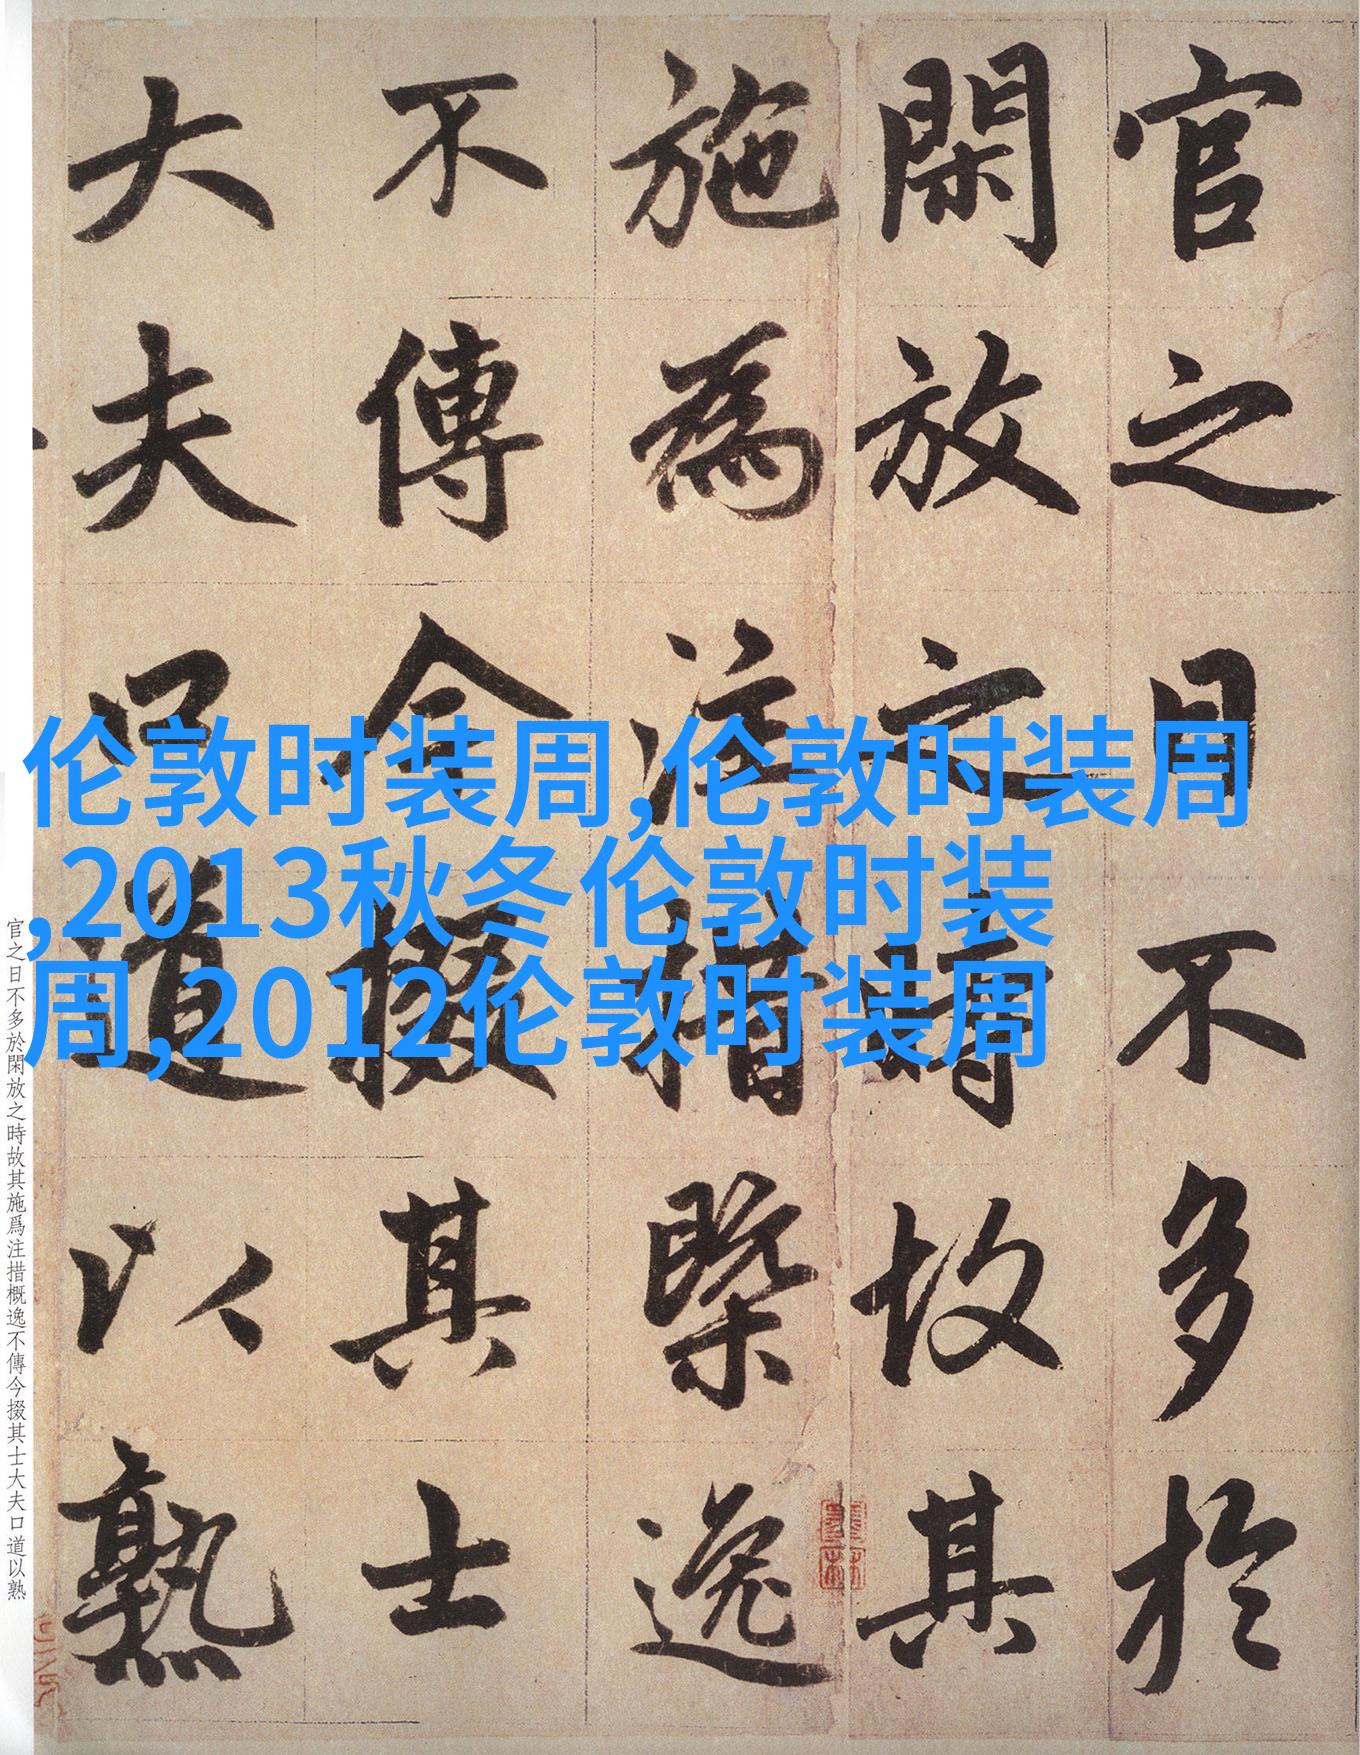 官之日不多於
閑放之時故其
施為注措槩逸
不傳今掇其士
大夫口道以熟
伦敦时装周,伦敦时装周
,2013秋冬伦敦时装
周,2012伦敦时装周
官之日不多於閑放之時故其施爲注措概逸不傳今掇其士大夫口道以熟